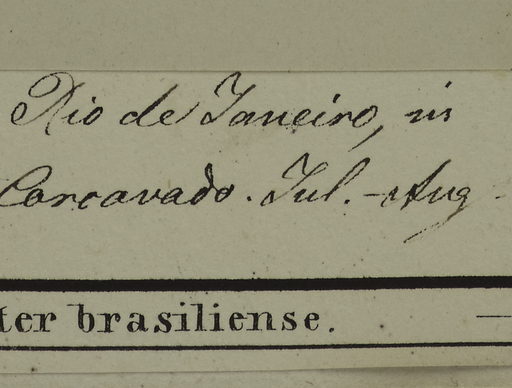 Rio de Janeiro, in
Corcovado. Jul. - Aug
ter brasiliense.